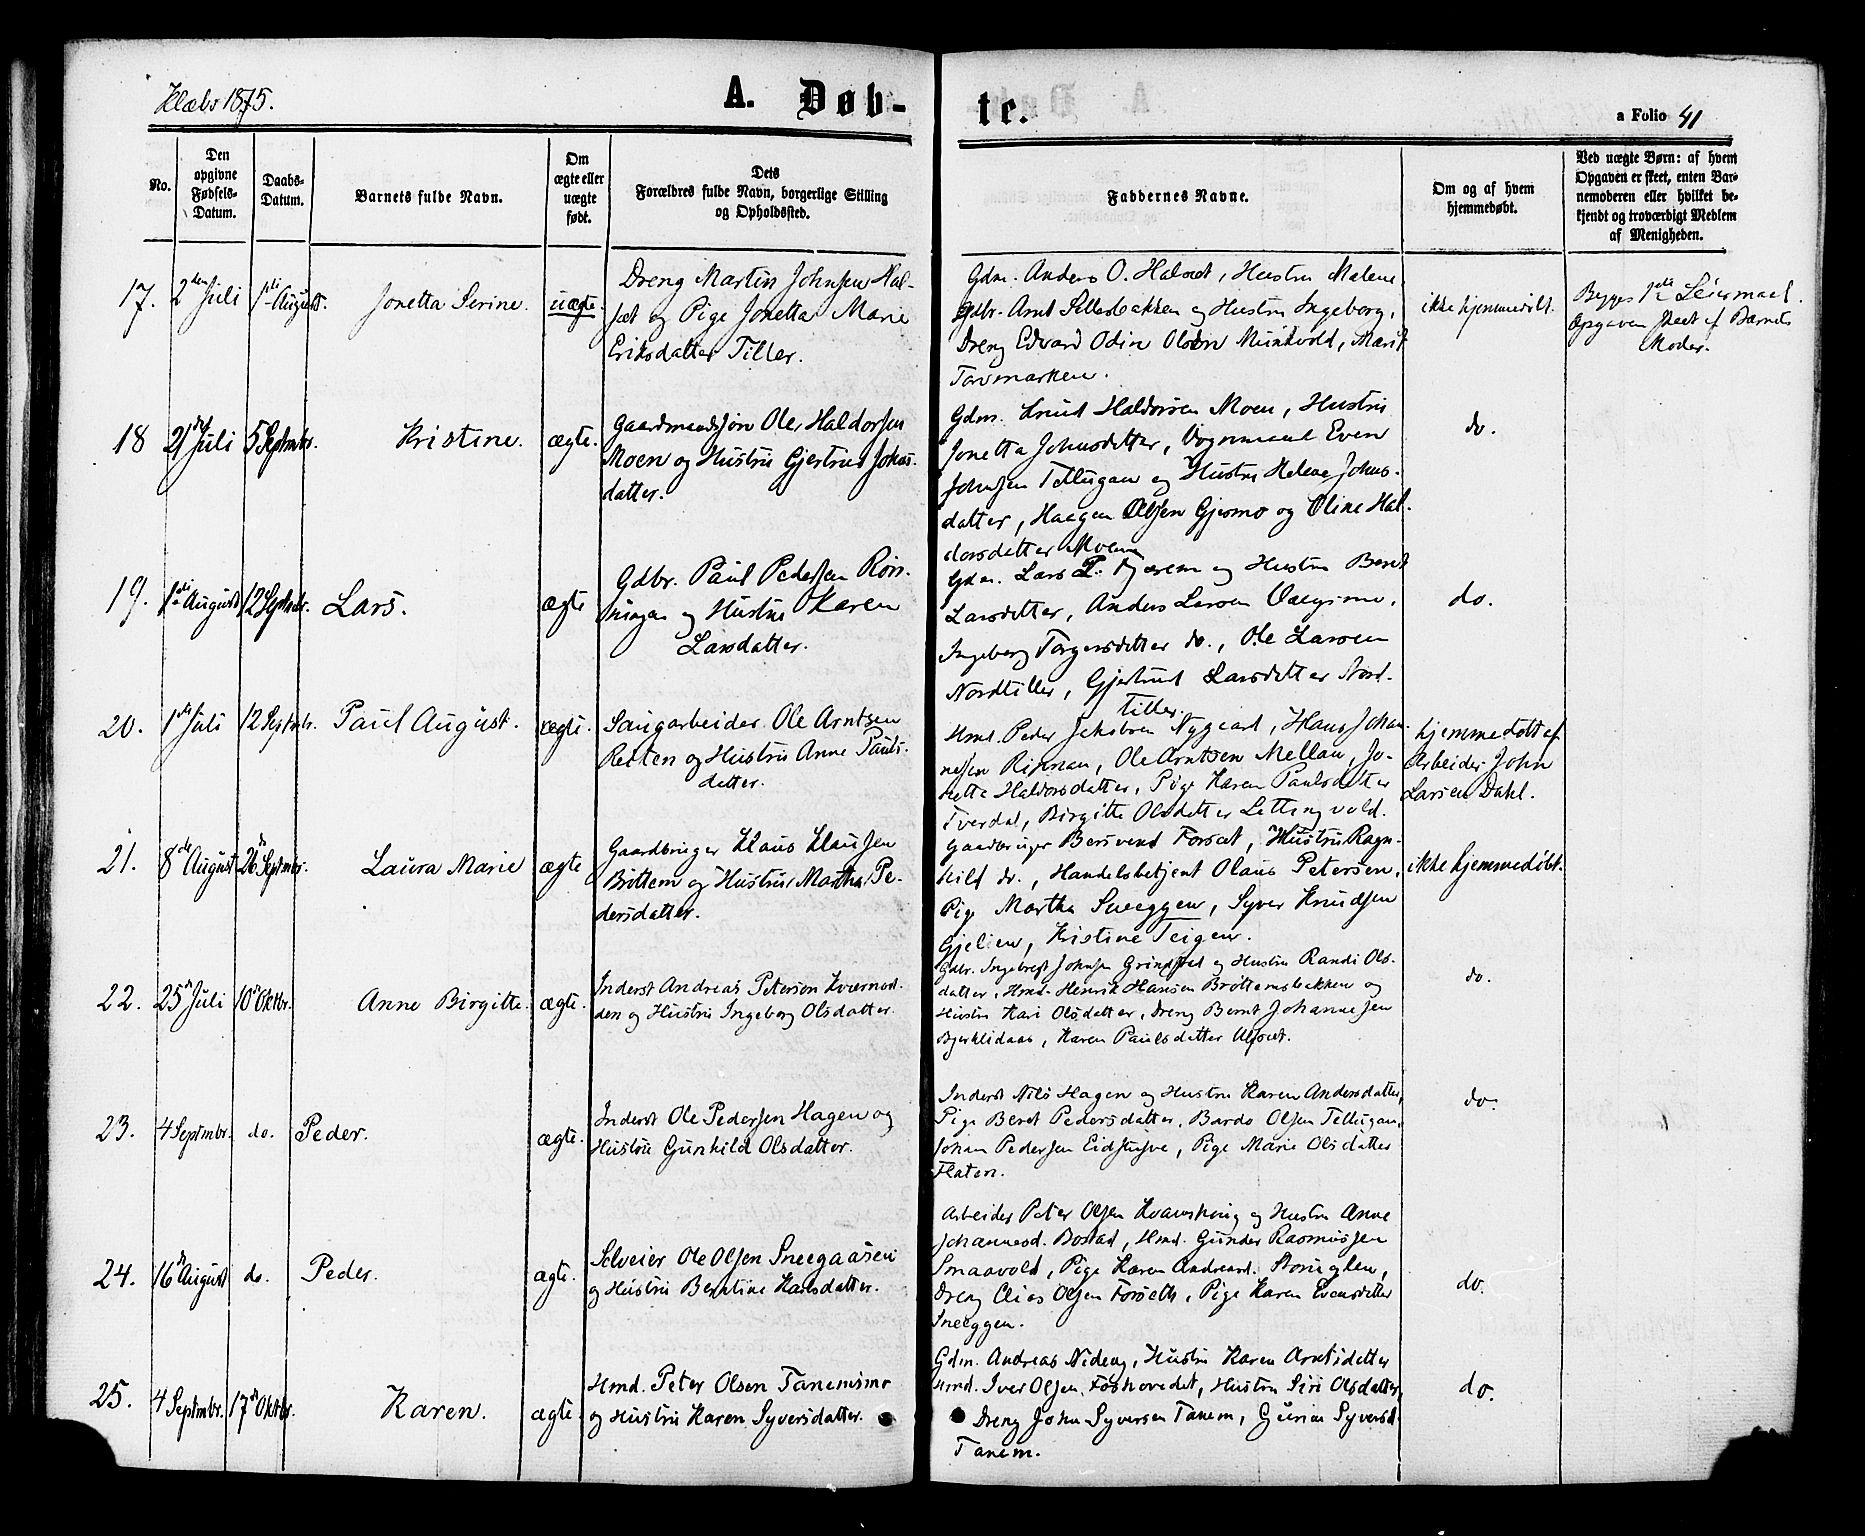 Klæbo 1875.
A. Døb-
te.
a Folio 41
No.
Den opgivne Fødsels-Datum.
Daabs-Datum.
Barnets fulde Navn.
Om ægte eller uægte født.
Dets Forældres fulde Navn, borgerlige Stilling og Opholdssted.
Faddernes Navne.
Om og af hvem hjemmedøbt.
Ved uægte Børn: af hvem Opgaven er skeet, enten Barnemoderen eller hvilket bekjendt og troværdigt Medlem af Menigheden.
17. 2den Juli 1ste August. Jonetta Serine. uægte.
Dreng Martin Johnsen Hal-
set og Pige Jonetta Marie
Eriksdatter Tiller.
Gdm. Anders O. Halset, Hustru Malene,
Gdbr. Arnt Sellesbakken og Hustru Ingeborg,
Dreng Edvard Odin Olsen Munkvold, Marit
Torvmarken.
ikke hjemmedøbt.
Begges 1ste Leiermaal.
Opgaven skeet af Barnets
Moder.
18 21de Juli 5 Septmbr. Kristine. ægte.
Gaardmandssøn Ole Haldorsen
Moen og Hustru Gjertrud Johns-
datter.
Gdm. Knud Haldorsen Moen, Hustru
Jonetta Johnsdatter, Vognmand Even
Johnsen Tellugan og Hustru Helene Johns-
datter, Haagen Olsen Gjesmo og Oline Hal-
dorsdatter Moen
do.
19. 1ste August 12 Septmbr. Lars. ægte
Gdbr. Paul Pedersen Røn-
ningen og Hustru Karen
Larsdatter.
Gdm. Lars P. Hjærem og Hustru Beret
Larsdatter, Anders Larsen
Ingeborg Torgersdatter do., Ole Larsen
Nordtiller, Gjertrud Larsdatter Nord-
tiller.
do.
20. 1ste Juli 12 Septmbr. Paul August. ægte.
Saugarbeider Ole Arntsen
Retten og Hustru Anne Pauls-
datter.
Hmd. Peder Jakobsen Nygaard, Hans Johan-
nesen Rinnan, Ole Arntsen Mellan, Jo-
netta Haldorsdatter, Pige Karen Paulsdatter
Tverdal, Birgitte Olsdatter Lettingvold.
hjemmedøbt af
Arbeider John
Larsen Dahl.
21. 8de August 26de Septmbr. Laura Marie ægte
Gaardbruger Klaus Klausen
Brøttem og Hustru Martha Pe-
dersdatter.
Gaardbruger Bersvend Forset, Hustru Ragn-
hild do., Handelsbetjent Olaus Petersen,
Pige Martha Sneeggen, Syver Knudsen
Gjelien, Kristine Teigen.
ikke hjemmedøbt.
22. 25de Juli 10de Oktbr. Anne Birgitte. ægte.
Inderst Andreas Petersen
den og Hustru Ingeborg Olsdatter.
Gdbr. Ingebregt Johnsen Grindstad og Hustru Randi Ols-
datter, Hmd. Henrik Hansen Brøttemsbakken og
Hustru Kari Olsdatter, Dreng Bernt Johannesen
Bjerklidaas, Karen Paulsdatter Ulset.
do.
23. 4 Septmbr. do. Peder. ægte.
Inderst Ole Pedersen Hagen og
Hustru Gunhild Olsdatter.
Inderst Nils Hagen og Hustru Karen Andersdatter,
Pige Beret Pedersdatter, Bardo Olsen Tellugan,
Johan Pedersen Eidstuve, Pige Marie Olsdatter
Flaten.
do.
24. 16de August do. Peder. ægte.
Selveier Ole Olsen Sneegaasen
og Hustru Berntine Karlsdatter.
Arbeider Peter Olsen og Hustru Anne
Johannesd. Bostad, Hmd. Gunder Rasmussen
Smaavold, Pige Karen Andreasd. Storuglen,
Dreng Elias Olsen Forseth, Pige Karen Evensdatter
Sneeggen.
do.
25. 4 Septmbr. 17de Oktbr. Karen. ægte.
Hmd. Peter Olsen Tanemsmo
og Hustru Karen Syversdatter.
Gdm. Andreas Nideng, Hustru Karen Arntsdatter
Hmd. Iver Olsen Foshovedet, Hustru Siri Olsdatter,
Dreng John Syversen Tanem, Guruu Syversd.
Tanem.
do.